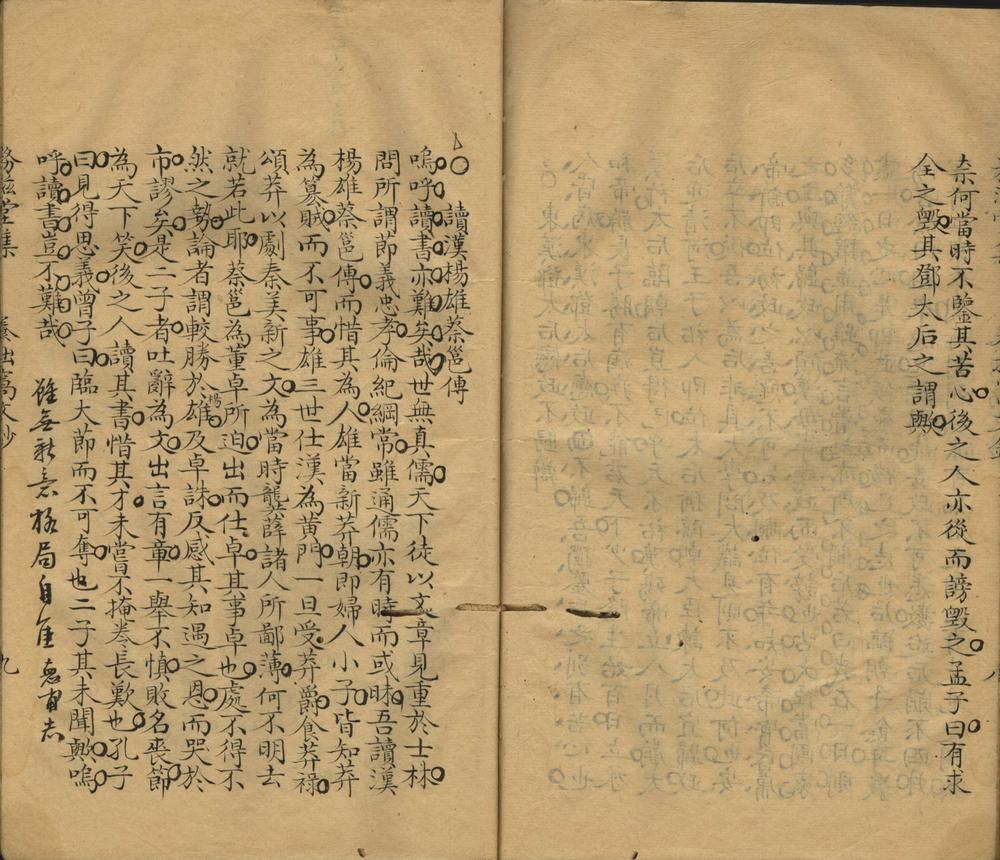 奈何當時不鑒其苦心後之人亦從而謗毀之孟子曰有求
全之毀其鄧太后之謂歟
讀漢楊雄蔡邕傳
嗚呼讀書亦難矣哉世無真儒天下徒以文章見重於士林
問所謂節義忠孝倫紀綱常雖通儒亦有時而或昧吾讀漢
楊雄蔡邕傳而惜其為人雄當新莽朝即婦人小子皆知莽
為篡賊而不可事雄三世仕漢為黃門一旦受莽爵食莽祿
頌莽以劇秦美新之文為當時龔薛諸人所鄙薄何不明去
就若此耶蔡邕為董卓所迫出而仕卓其事卓也處不得不
然之勢論者謂較勝於楊雄及卓誅反感其知遇之恩而哭於
市謬矣是二子者吐辭為文出言有章一舉不慎敗名喪節
為天下笑後之人讀其書惜其才未嘗不掩卷長歎也孔子
曰見得思義曾子曰臨大節而不可奪也二子其未聞歟嗚
呼讀書豈不難哉
雖無新意格局自佳
九